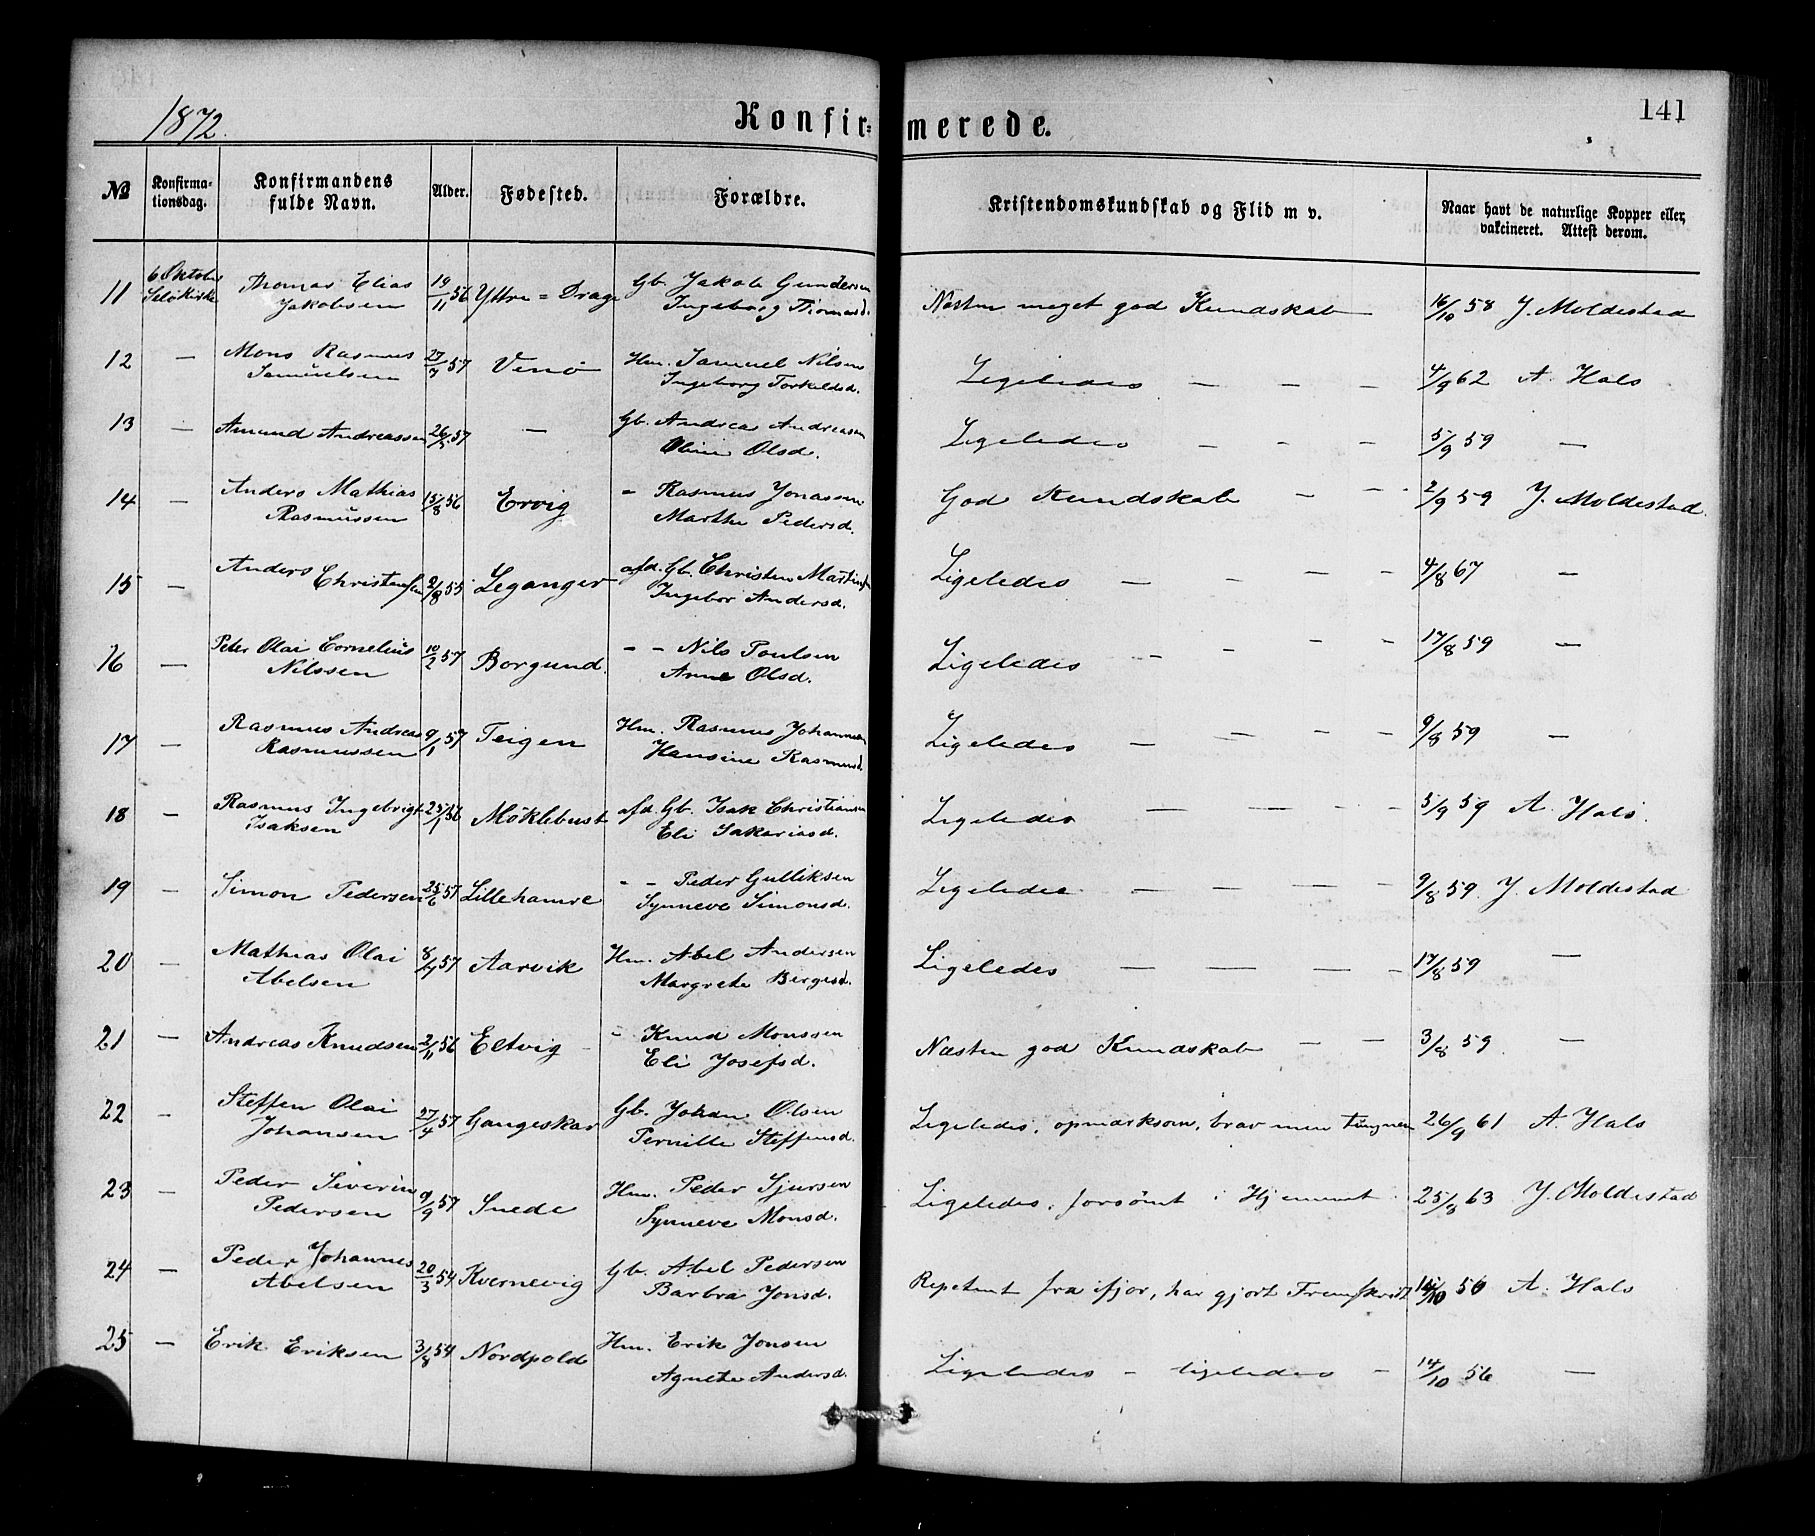 1872.
Konfirmerede.
141
№
Konfirma-
tionsdag.
Konfirmandens
fulde Navn.
Alder.
Fødested.
Forældre.
Kristendomskundskab og Flid m v.
Naar havt de naturlige Kopper eller,
vakcineret. Attest derom.
11 6 Oktober Thomas Elias 19/11 56 Yttre = Drage Gb. Jakob Gundersen Næsten meget god Kundskab — 16/10 58 J. Moldestad
Selökirke Jakobsen Ingeborg Thomasd.
12 — Mons Rasmus 27/7 57 Venö Hm. Samuel Nilsen Ligeledes — — — 4/9 62 A. Hals
Samuelsen Ingeborg Torkildsd.
13 — Amund Andreassen 26/5 57 — Gb. Andreas Andreasen Ligeledes — — — 5/9 59 —
Oline Olsd.
14 — Anders Mathias 15/8 56 Ervig " Rasmus Jonassen God Kundskab — — 2/9 59 J. Moldestad.
Rasmussen Marthe Pedersd.
15 — Anders Christensen 2/8 55 Leganger afd. Gb. Christen Martins Ligeledes — — — — 4/8 67 —
Ingebor Andersd.
16 — Peter Olai Cornelius 10/2 57 Borgund. " " Nils Poulsen Ligeledes — — — — 17/8 59 —
Nilssen Anne Olsd.
17 — Rasmus Andreas 9/1 57 Teigen Hm. Rasmus Johannesen Ligeledes — — — — 9/8 59 —
Rasmussen Hansine Rasmusd.
18 — Rasmus Ingebrigt 25/1 56 Möklebust afd. Gb. Isak Christiansen Ligeledes — — — — 5/9 59 A. Hals.
Isaksen Eli Sakariasd.
19 — Simon Pedersen 25/6 57 Lillehamre " " Peder Gulliksen Ligeledes — — — — 9/8 59. J. Moldestad
Synneve Simonsd.
20 — Mathias Olai 57 Aarvik Hm. Abel Andersen Ligeledes — — — — 17/8 59 —
Abelsen Margrete Bergesd.
21 — Andreas Knudsen 2/11 56 Eltvig " Knud Monssen Næsten god Kundskab — — 3/8 59. —
Eli Josefsd.
22 — Steffen Olai 27/4 57 Gangeskar Gb. Johan Olsen Ligeledes, opmærksom, brav men tungnem 26/9 61 A. Hals
Johansen Pernille Steffensd.
23 — Peder Siverin 9/9 57 Snede Hm. Peder Sjursen Ligeledes, forsömt i Hjemmet 25/8 63 J. Moldestad
Pedersen Synneve Monsd.
24 — Peder Johannes 20/3 54 Kvernevig Gb. Abel Pedersen Repetent fra ifjor, har gjort Fremskridt 56 A. Hals
Abelsen Barbra Jonsd.
25 — Erik Eriksen 3/8 54 Nordpold Hm. Erik Jonsen Ligeledes — ligeledes — 14/10 56 —
Agnete Andersd.